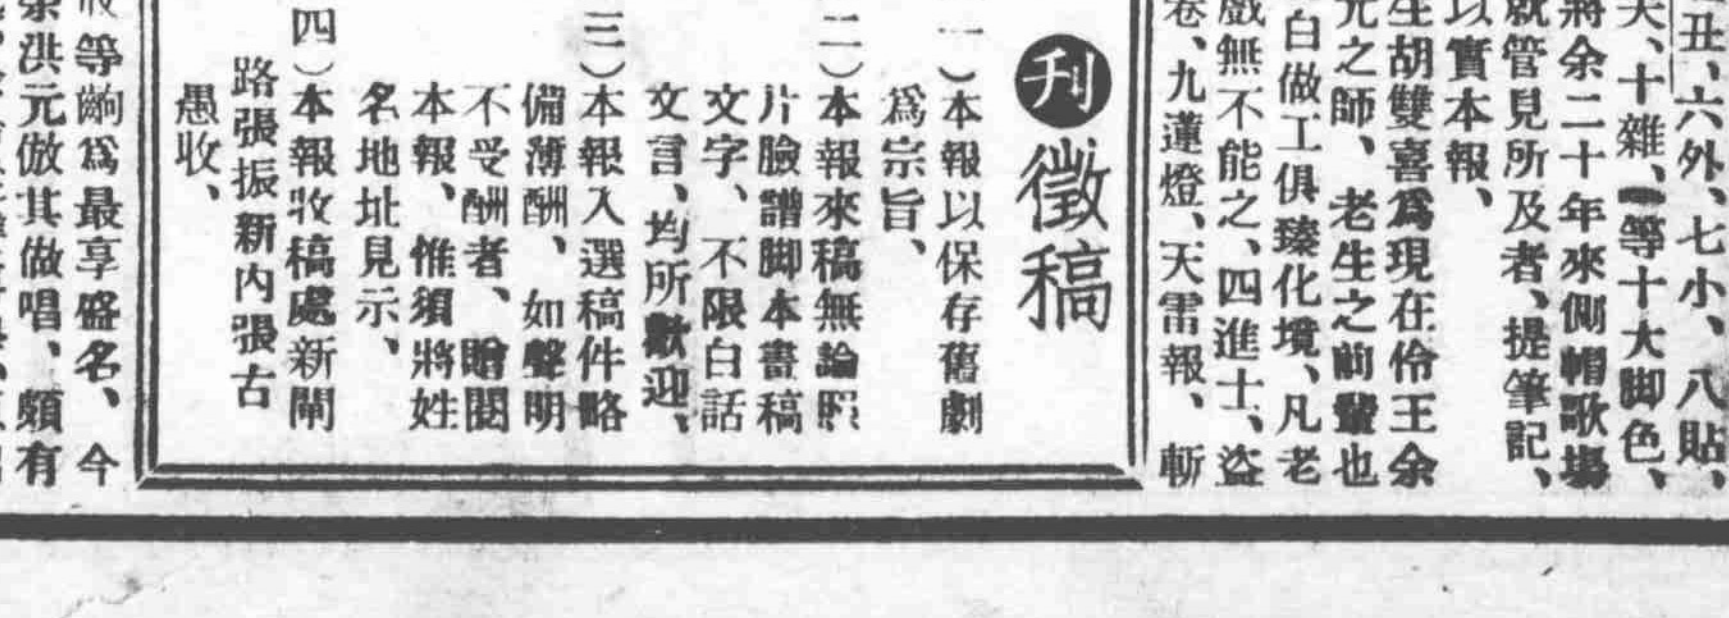 丑、六外、七小、八貼、
夫、十雜、一等十大脚色、
將余二十年來側帽歌塲
就管見所及者、提筆記、
以實本報、
生胡雙喜爲現在伶王余
元之師、老生之前輩也
白做工俱臻化境、凡老
戲無不能之、四進士、盜
卷、九蓮燈、天雷報、斬
刋徵稿
一）本報以保存舊劇
爲宗旨、
二）本報來稿無論照
片臉譜脚本書稿
文字、不限白話
文言、均所歡迎、
三）本報入選稿件略
備薄酬、如聲明
不受酬者、贈閱
本報、惟須將姓
名地址見示、
四）本報收稿處新閘
路張振新內張古
愚收、
等齣爲最享盛名、今
余洪元倣其做唱、頗有